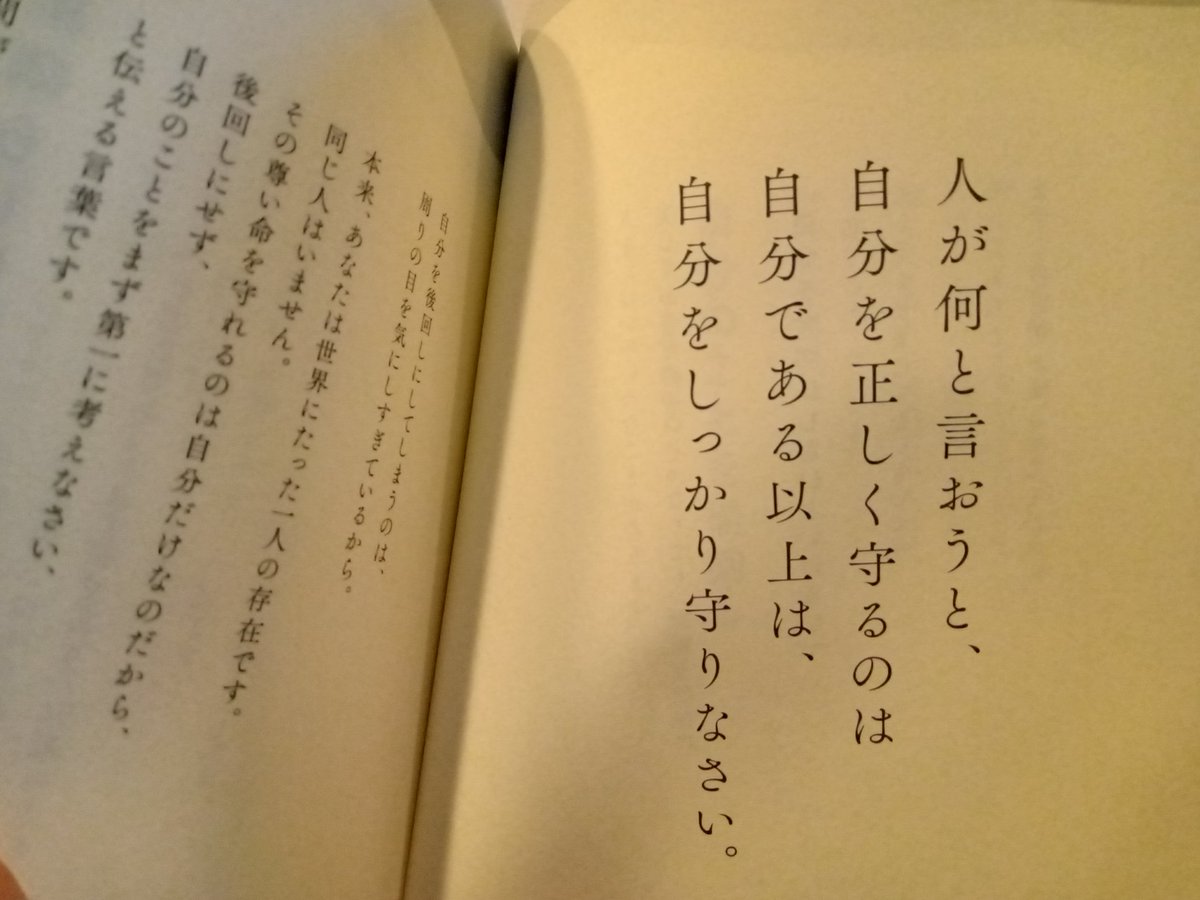 人が何と言おうと、
自分を正しく守るのは
自分である以上は、
自分をしっかり守りなさい。
自分を後回しにしてしまうのは、
周りの目を気にしすぎているから。
本来、あなたは世界にたった一人の存在です。
同じ人はいません。
その尊い命を守れるのは自分だけなのだから、
後回しにせず、
自分のことをまず第一に考えなさい、
と伝える言葉です。